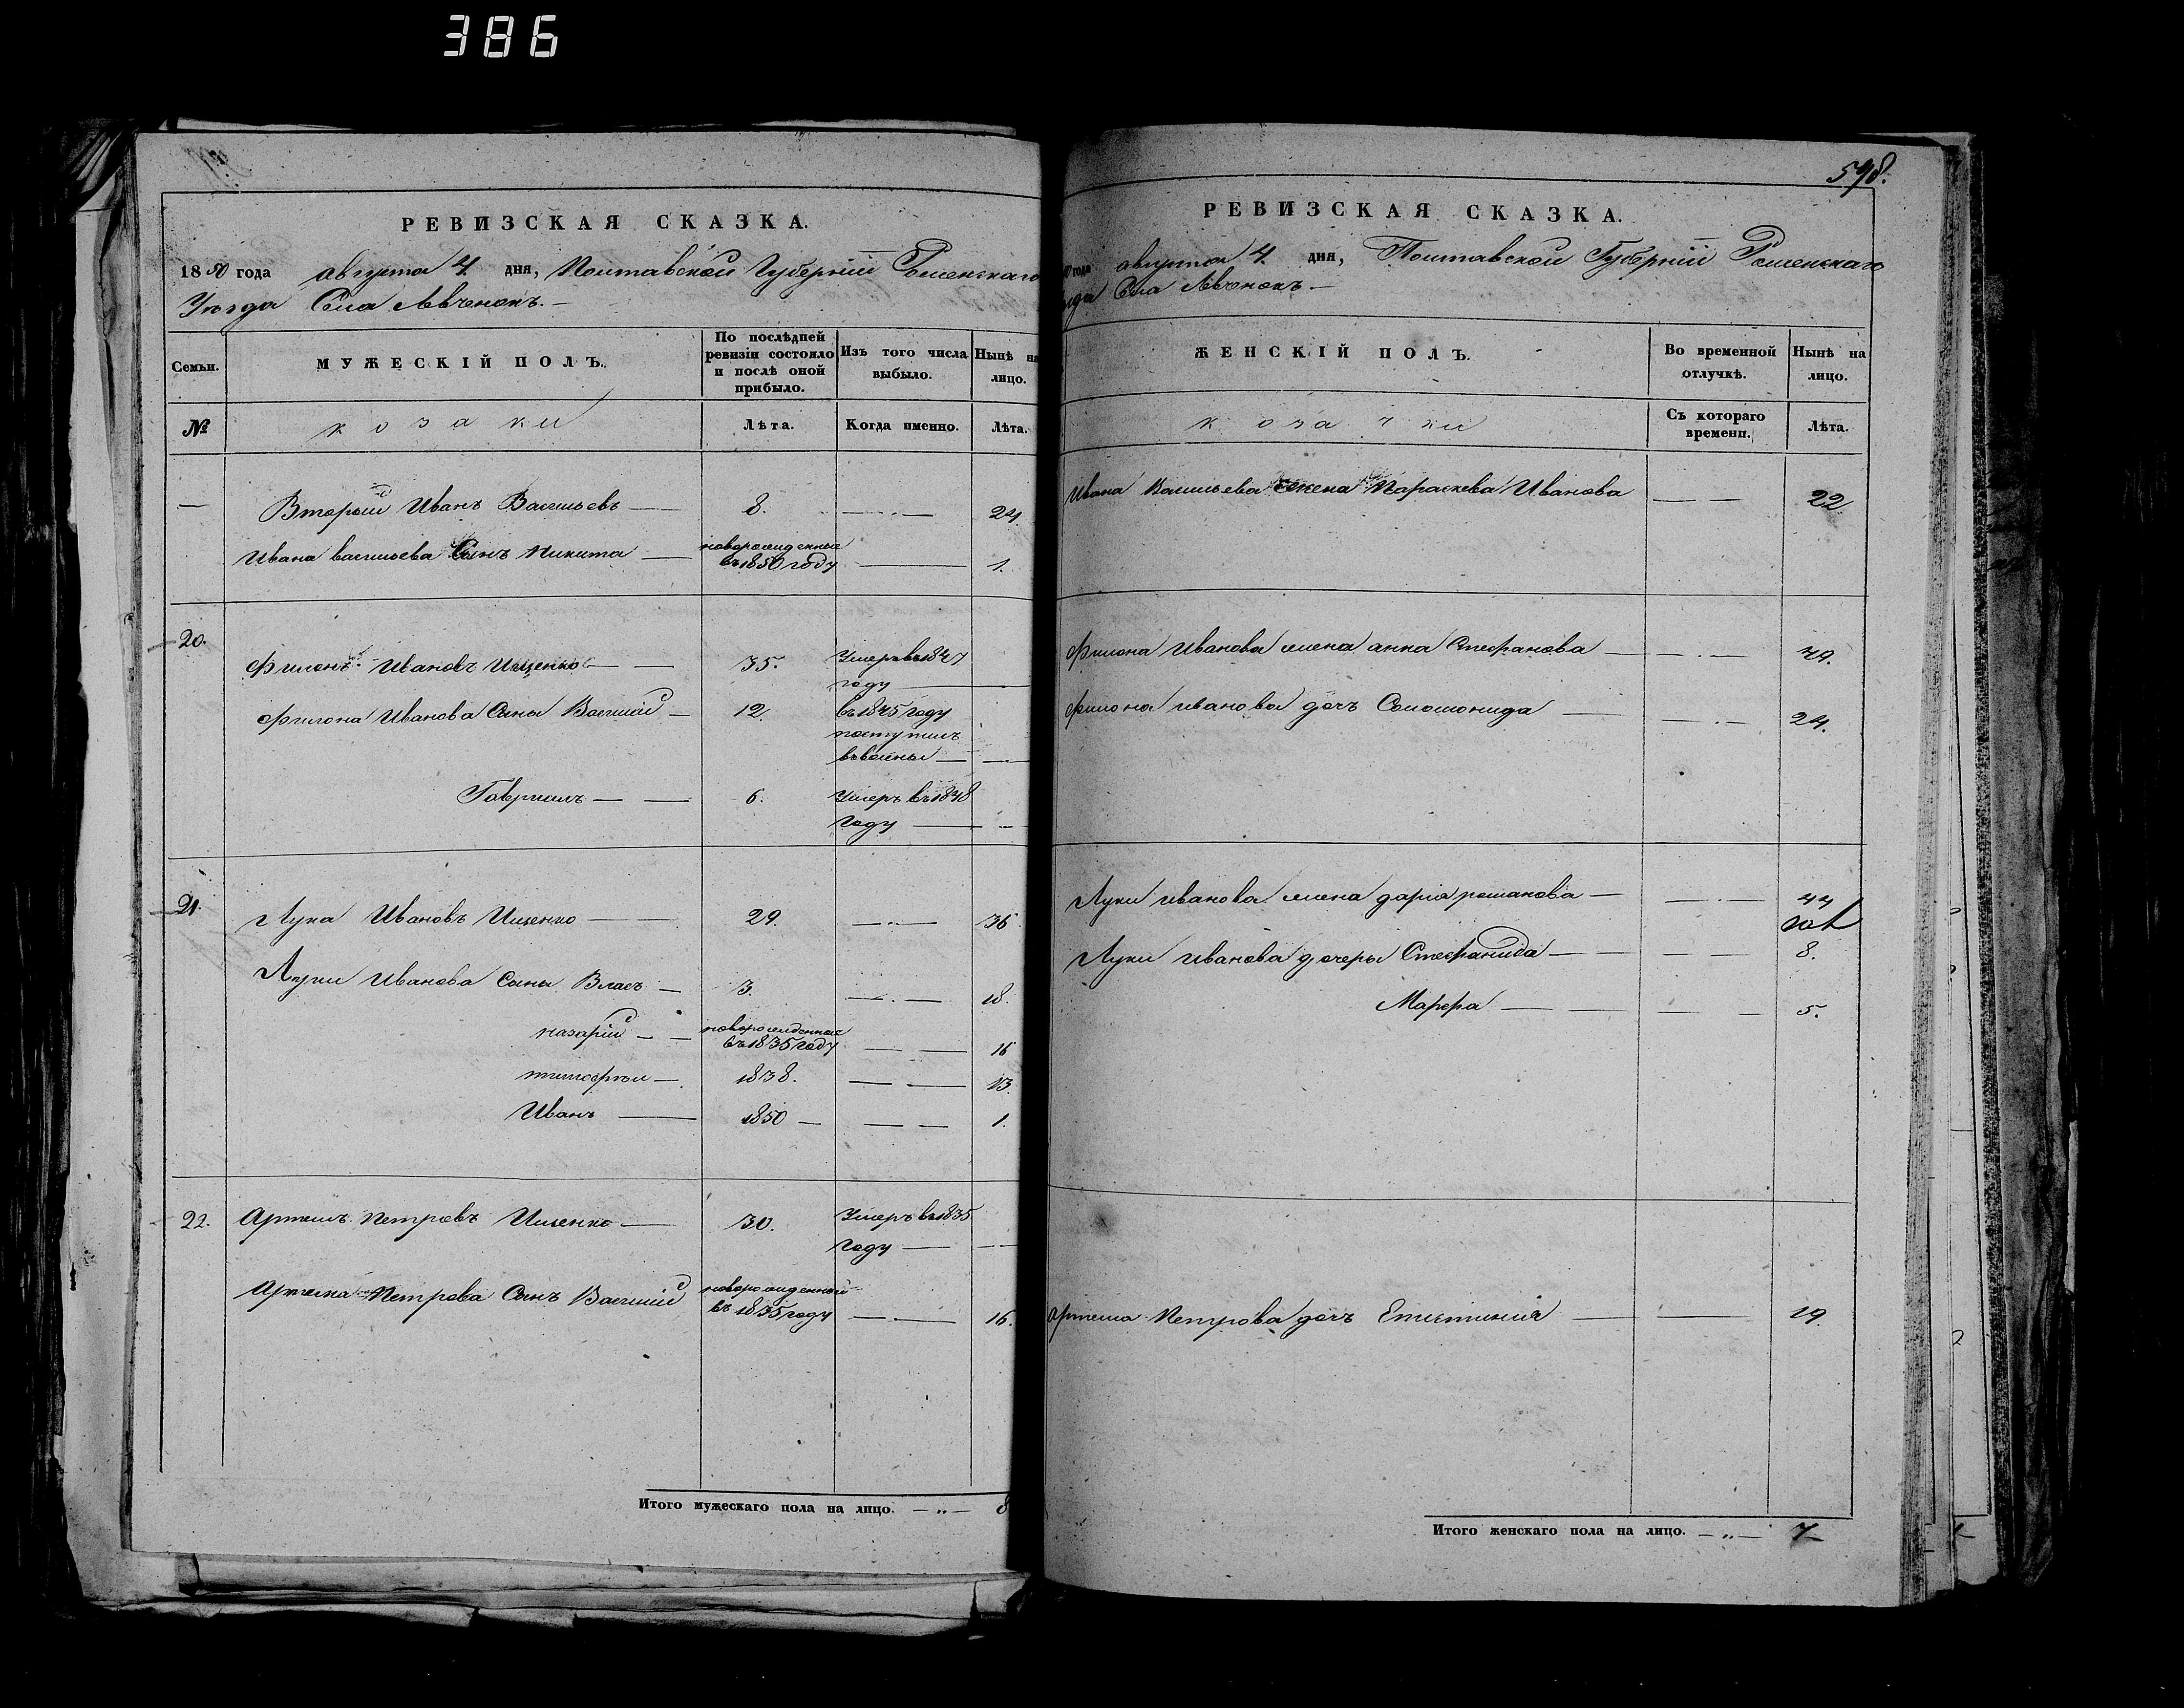 386
РЕВИЗСКАЯ СКАЗКА.
1850 года августа 4. дня, Полтавской Губерніи Роменскаго
Уѣзда Села Авченокъ.
Семьи.
МУЖЕСКІЙ ПОЛЪ.
По послѣдней ревизіи состояло и послѣ оной прибыло.
Изъ того числа выбыло.
Нынѣ на лицо.
№
козаки
Лѣта.
Когда именно.
Лѣта.
— Вторый Иванъ Васильевъ — 8. — 24.
Ивана васильева Сынъ Никита — новорожденные въ 1850 году — 1.
20. Филонъ Ивановъ Ищенко — 35. Умеръ въ 1847 году —
Филона Иванова Сыны Василій — 12. въ 1845 году поступилъ
Гавріилъ — 6. Умеръ въ 1848 году —
21. Лука Ивановъ Ищенко — 29. —
Луки Иванова Сыны Власъ — 3. — 18.
назарій — новорожденные въ 1835 году — 16
тимофѣи — 1838. — 13.
Иванъ — 1850 — 1.
22. Артемъ Петровъ Ищенко — 30. Умеръ въ 1835 году —
Артема Петрова Сынъ Василій новорожденный въ 1835 году — 16.
Итого мужескаго пола на лицо. — „ — 8
598.
РЕВИЗСКАЯ СКАЗКА.
года августа 4. дня, Полтавской Губерніи Роменскаго
Села Авченокъ —
ЖЕНСКІЙ ПОЛЪ.
Во временной отлучкѣ.
Нынѣ на лицо.
козачки
Съ котораго времени.
Лѣта.
Ивана Васильева жена Параскева Иванова — 22
Филона Иванова жена анна Стефанова — 49.
Филона иванова дочь Соломонида — 24.
Луки иванова жена даріа романова — 44
Луки иванова дочеры Стефанида — 8.
Марфа — 5.
Артема Петрова дочъ — 19.
Итого женскаго пола на лицо. — „ — 7